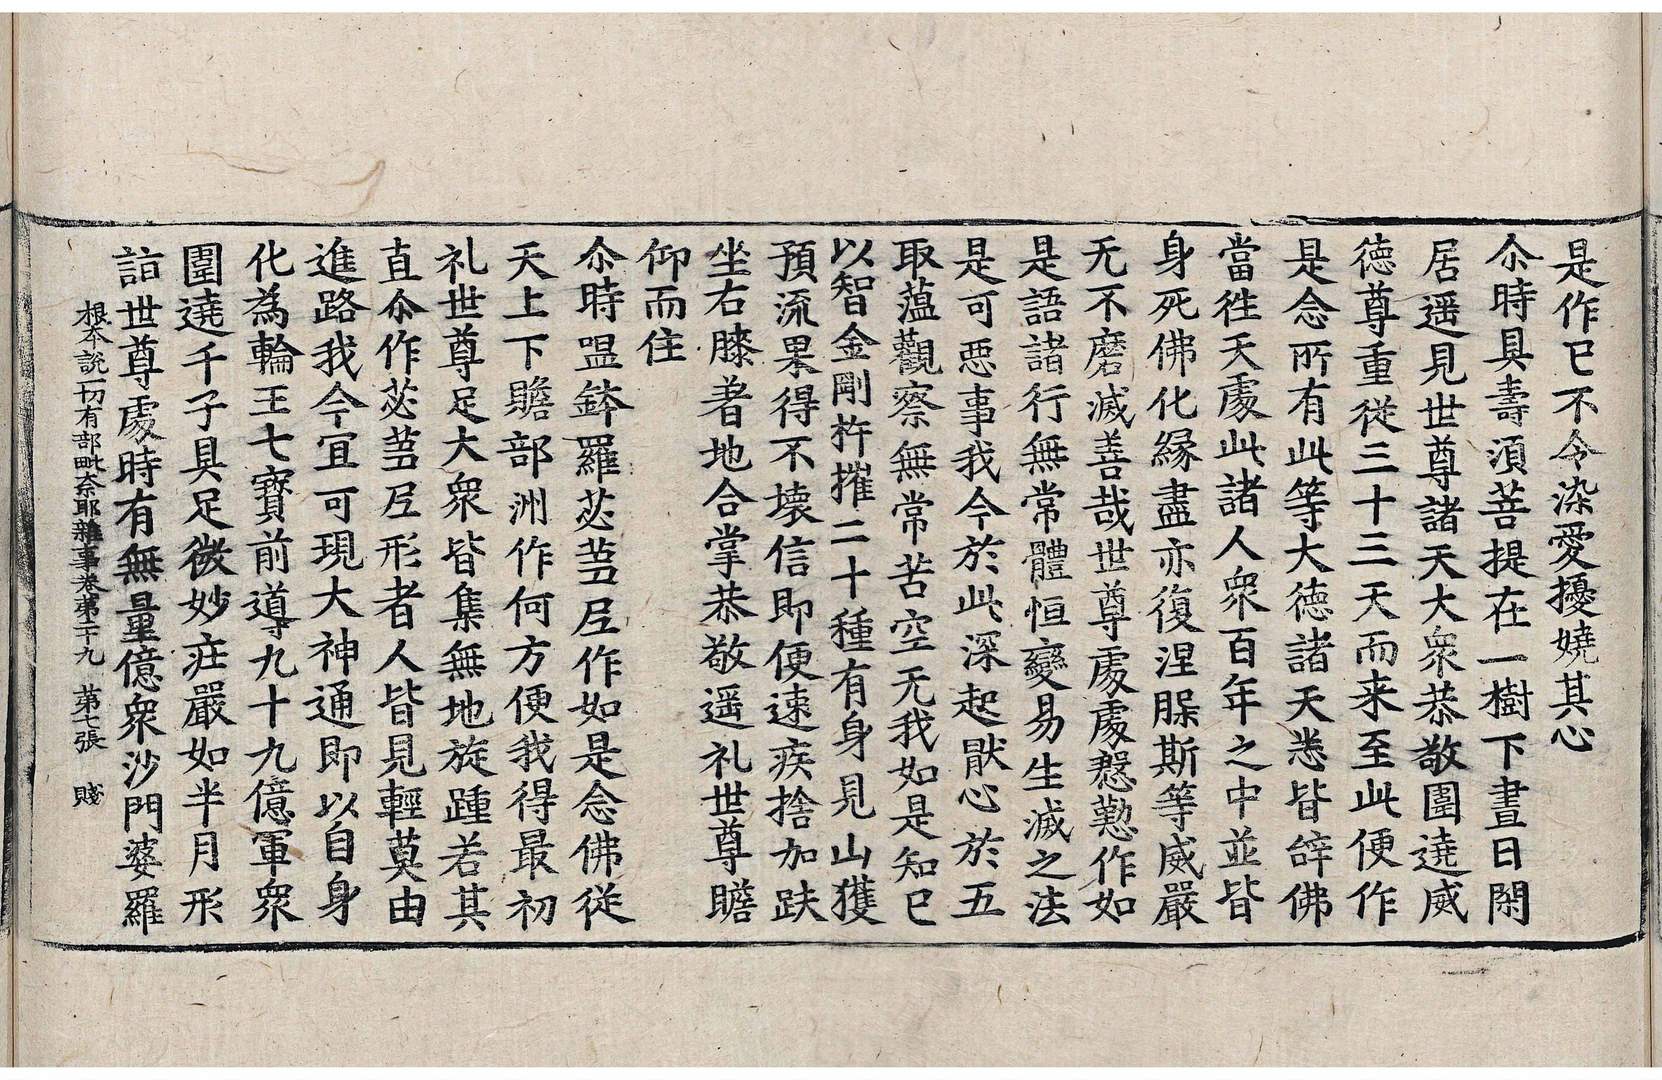 是作已不令染愛擾嬈其心
尒時具壽湏菩提在一樹下晝日閑
居遥見世尊諸天大衆恭敬圍遶威
德尊重從三十三天而来至此便作
是念所有此等大德諸天悉皆辝佛
當徃天處此諸人衆百年之中並皆
身死佛化縁盡亦復涅槃斯等威嚴
无不磨滅善哉世尊處處慇懃作如
是語諸行無常體恒變易生滅之法
是可惡事我今於此深起猒心於五
取蘊觀察無常苦空无我如是知已
以智金剛杵摧二十種有身見山獲
預流果得不壞信即便速疾捨加趺
坐右膝著地合掌恭敬遥礼世尊瞻
仰而住
尒時嗢鉢羅苾蒭尼作如是念佛從
天上下贍部洲作何方便我得最初
礼世尊足大衆皆集無地旋踵若其
直尒作苾蒭尼形者人皆見輕莫由
進路我今宜可現大神通即以自身
化為輪王七寶前導九十九億軍衆
圍遶千子具足微妙荘嚴如半月形
詣世尊處時有無量億衆沙門婆羅
根本說一切有部毗奈耶雜事卷第二十九　第七張　賤